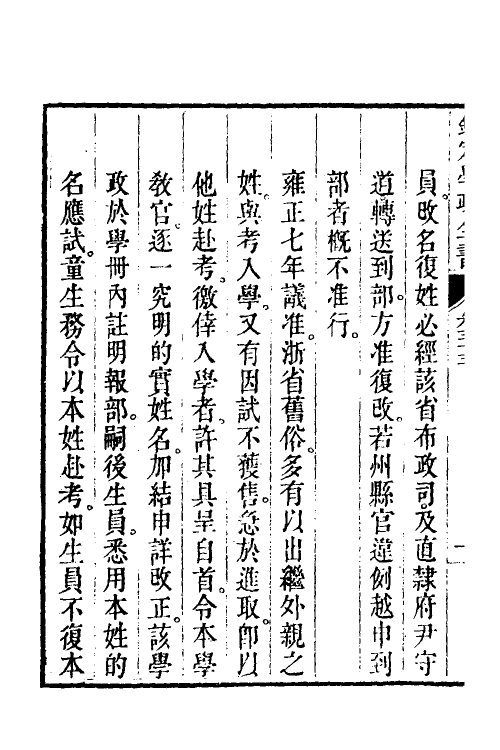 員改名復姓必經該省布政司及直隸府尹守
道轉送到部方准復改若州縣官違例越申到
部者概不准行
雍正七年議准浙省舊俗多有以出繼外親之
姓與考入學又有因試不獲售急於進取卽以
他姓赴考徼倖入學者許其具呈自首令本學
敎官逐一究明的實姓名加結申詳改正該學
政於學冊內註明報部嗣後生員悉用本姓的
名應試童生務令以本姓赴考如生員不復本